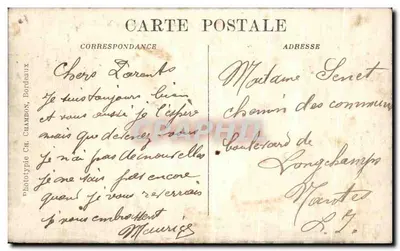 CARTE POSTALE
CORRESPONDANCE
ADRESSE
Chers Parents
Je suis toujours bien
et vous aussi je l'espère
mais que devenez vous
je n'ai pas de nouvelles
je ne sais pas encore
quand je vous reverrais
je vous embrassent
Maurice
Madame
chemin des
boulevard de
Longchamps
Nantes
L. I.
Phototypie Ch. Chambon, Bordeaux